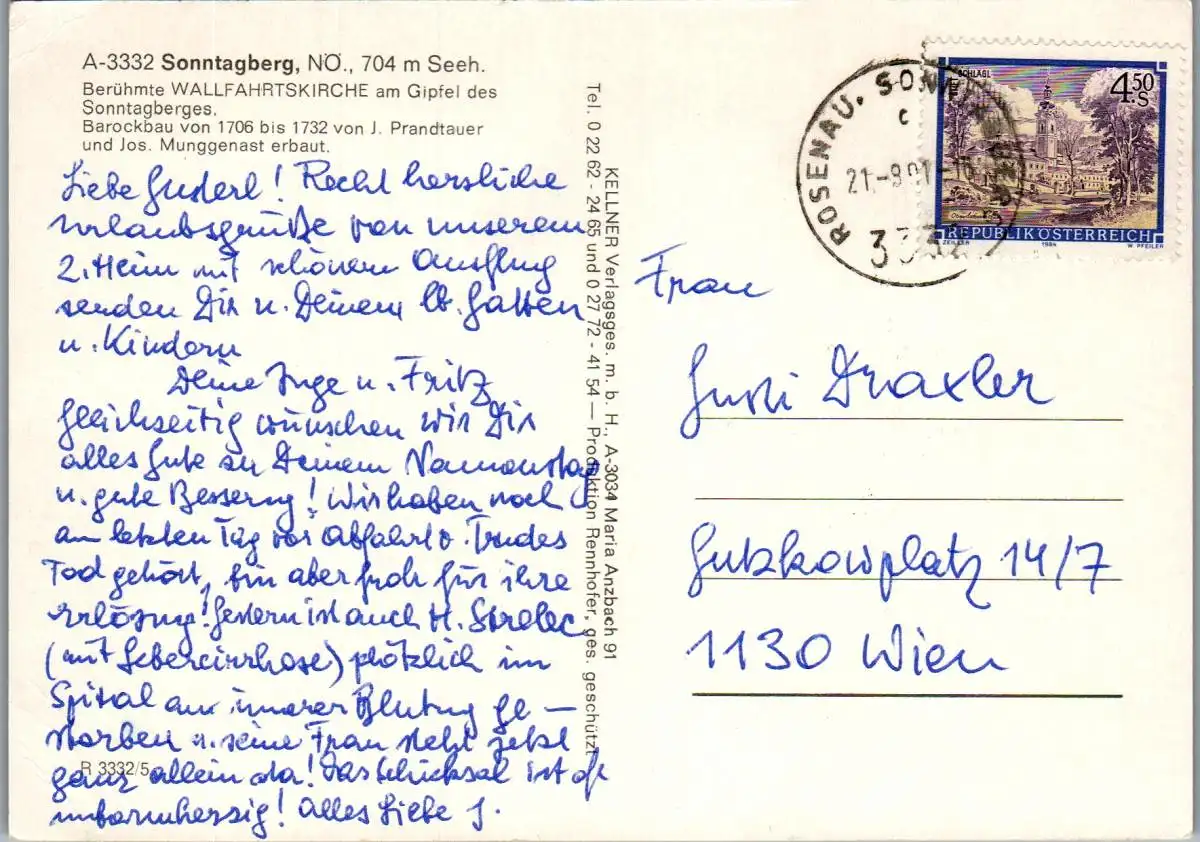 A-3332 Sonntagberg, NÖ., 704 m Seeh.
Berühmte WALLFAHRTSKIRCHE am Gipfel des
Sonntagberges.
Barockbau von 1706 bis 1732 von J. Prandtauer
und Jos. Munggenast erbaut.
Liebe Gusterl! Recht herzliche
Urlaubsgrüße von unserem
2. Heim mit schönem Ausflug
senden Dir u. Deinem lb. Gatten
u. Kindern
Deine Inge u. Fritz
Gleichzeitig wünschen wir Dir
alles Gute zu Deinem Namenstag
u. gute Besserung! Wir haben noch
am letzten Tag vor Abfahrt v. Trudes
Tod gehört, bin aber froh für ihre
Erlösung! Gestern ist auch H. Strelec
(mit Lebercirrhose) plötzlich im
Spital an innerer Blutung ge-
storben u. seine Frau steht jetzt
ganz allein da! Das Schicksal ist oft
unbarmherzig! Alles Liebe J.
R 3332/5
KELLNER Verlagsges. m. b. H., A-3034 Maria Anzbach 91
Tel. 0 22 62 - 24 65 und 0 27 72 - 41 54 — Produktion Rennhofer, ges. geschützt
ROSENAU, SONNTAGBERG
c
21.-8.91-
3332
SCHLÄGL
4.50 S
REPUBLIK ÖSTERREICH
ZEILLER 1984 W. PFEILER
Frau
Gusti Draxler
Gutzkowplatz 14/7
1130 Wien